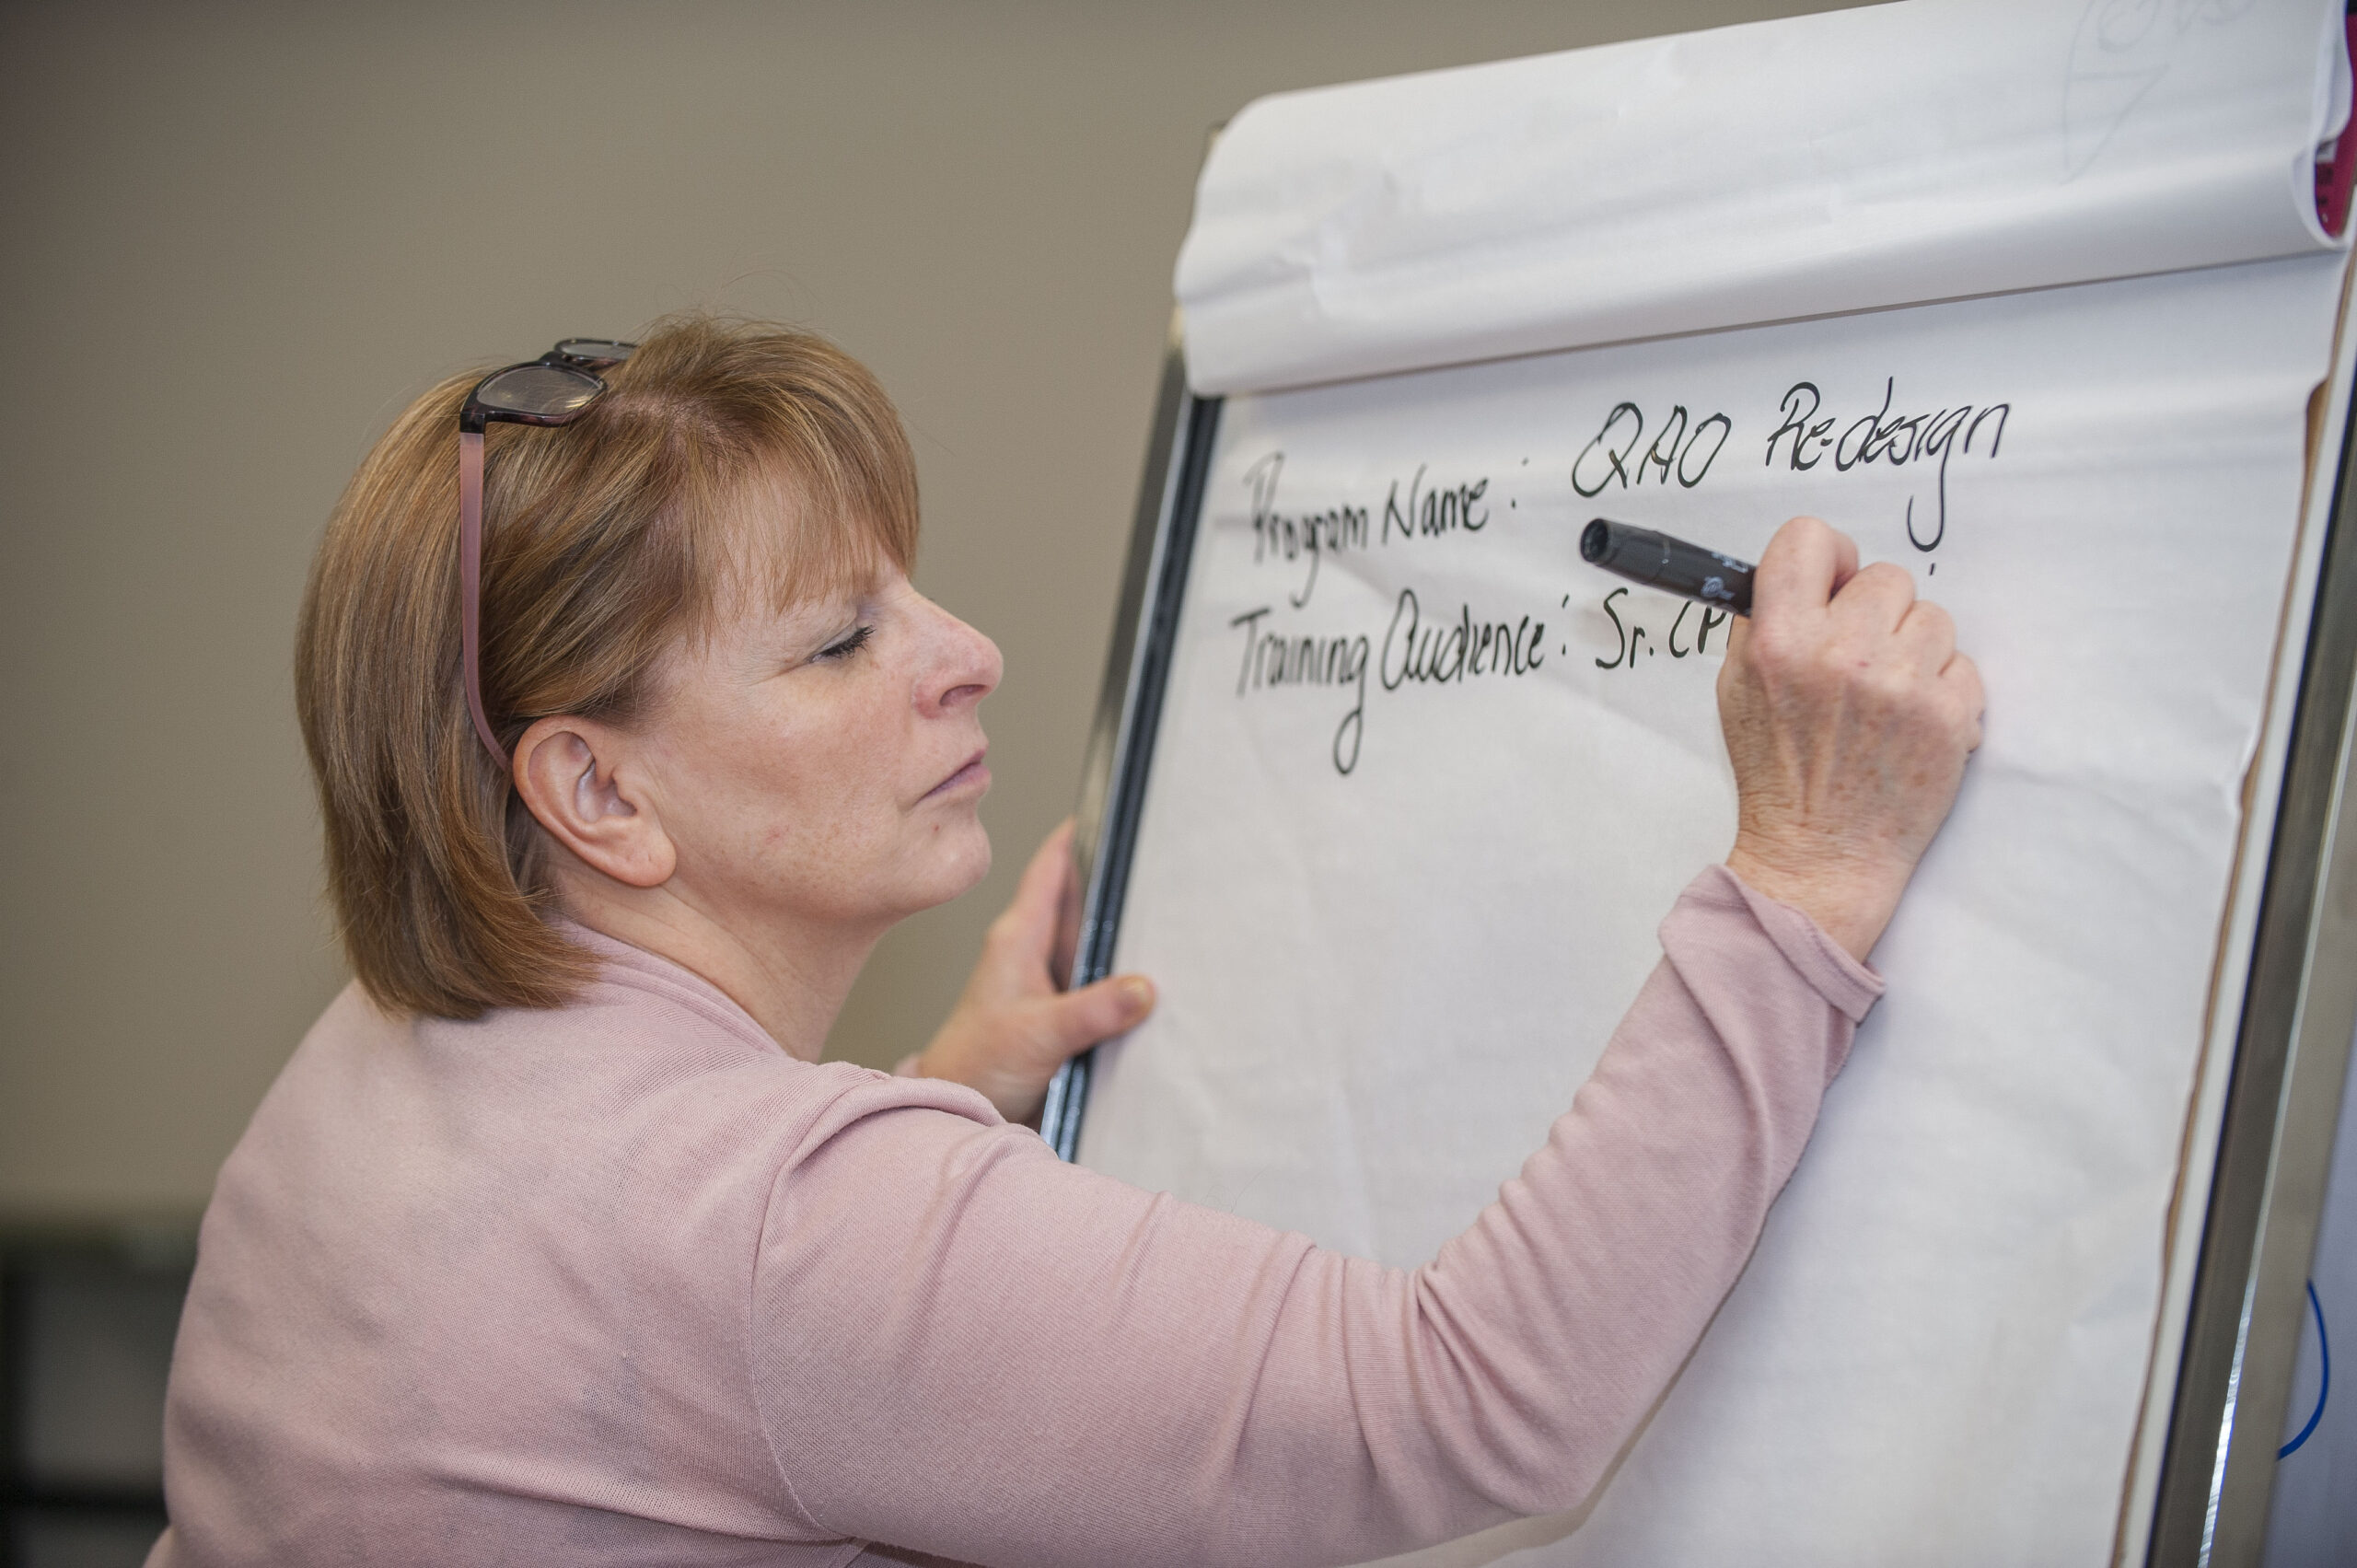 Program Name: QAO Re-design
Training Audience: Sr. CP